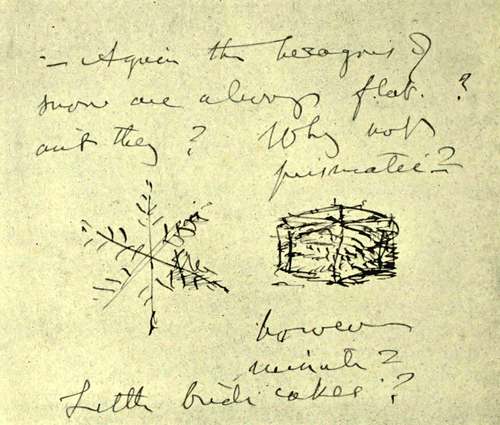 – Again the hexagons of
snow are always flat. ?
ain't they ? Why not
prismatic –?
however
minute ?
Little bride cakes ?